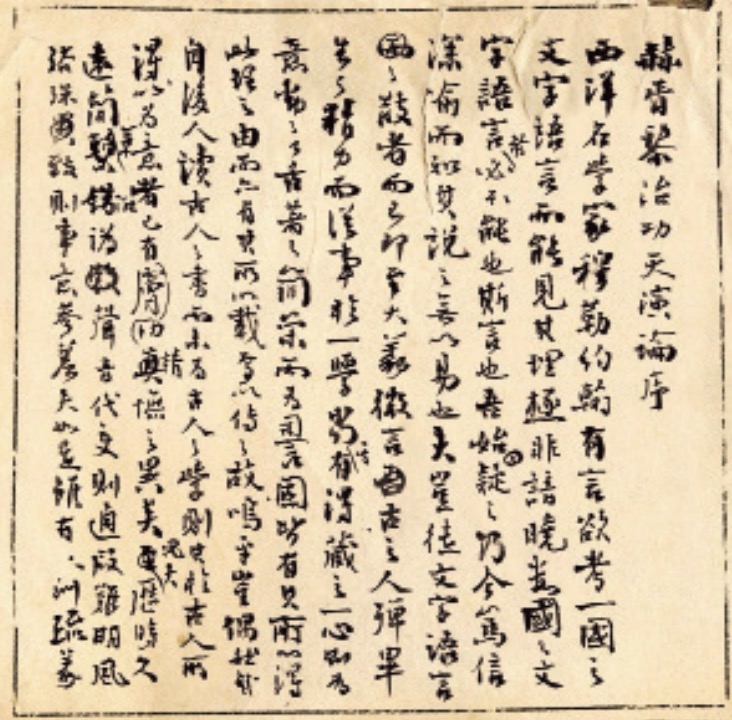 赫胥黎治功天演論序
西洋名學家穆勒約翰有言欲考一國之
文字語言而能見其理極非諳曉數國之文
字語言者必不能也斯言也吾始疑之乃今篤信
深喻而知其說之無以易也夫豈徒文字語言
之散者而已即至大義微言古之人殫畢
生之精力而從事於一學當有得藏之一心則為
意動之口舌著之簡策而為詞言固皆有其所以得
此理之由而亦有其所以載焉以傳之故嗚乎豈偶然哉
自後人讀古人之書而未為古人之學則其於古人所
得以為意者已有膚切精憮之異矣況夫歷時久
遠簡牘沿譌聲音代變則通段難明風
俗殊異致則事意參差夫如是雖有〻訓疏義